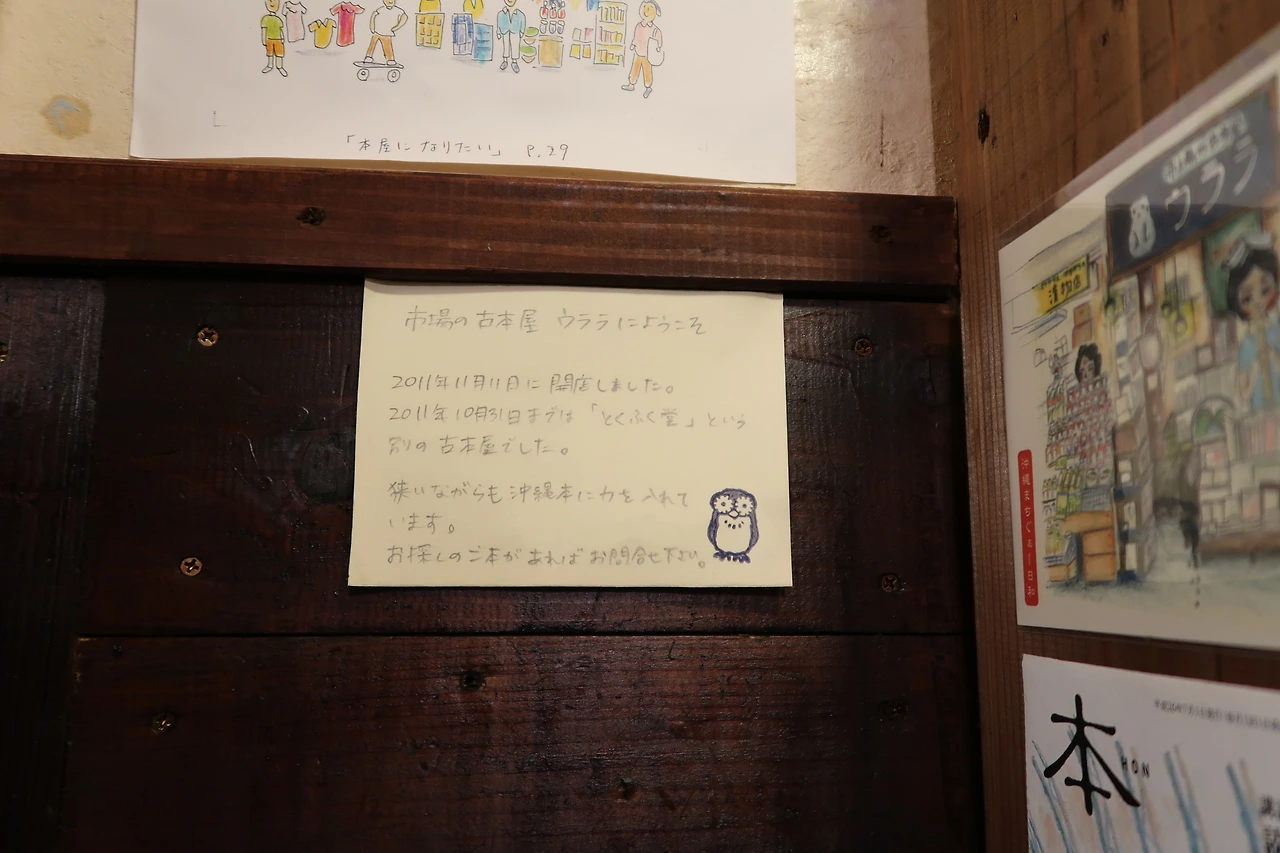 「本屋になりたい」 P.29
市場の古本屋 ウララにようこそ
2011年11月11日に開店しました。
2011年10月31日までは「とくふく堂」という
別の古本屋でした。
狭いながらも沖縄本に力を入れて
います。
お探しのご本があればお問合せ下さい。
ウララ
漬物店
沖縄まちぐゎー日和
本
HON